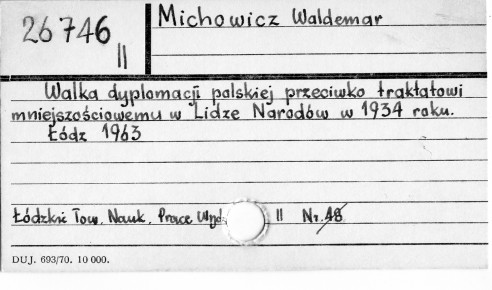 26746
II
Michowicz Waldemar
Walka dyplomacji polskiej przeciwko traktatowi
mniejszościowemu w Lidze Narodów w 1934 roku.
Łódź 1963
Łódzkie Tow. Nauk. Prace Wydz. II Nr. 48
DUJ. 693/70. 10 000.